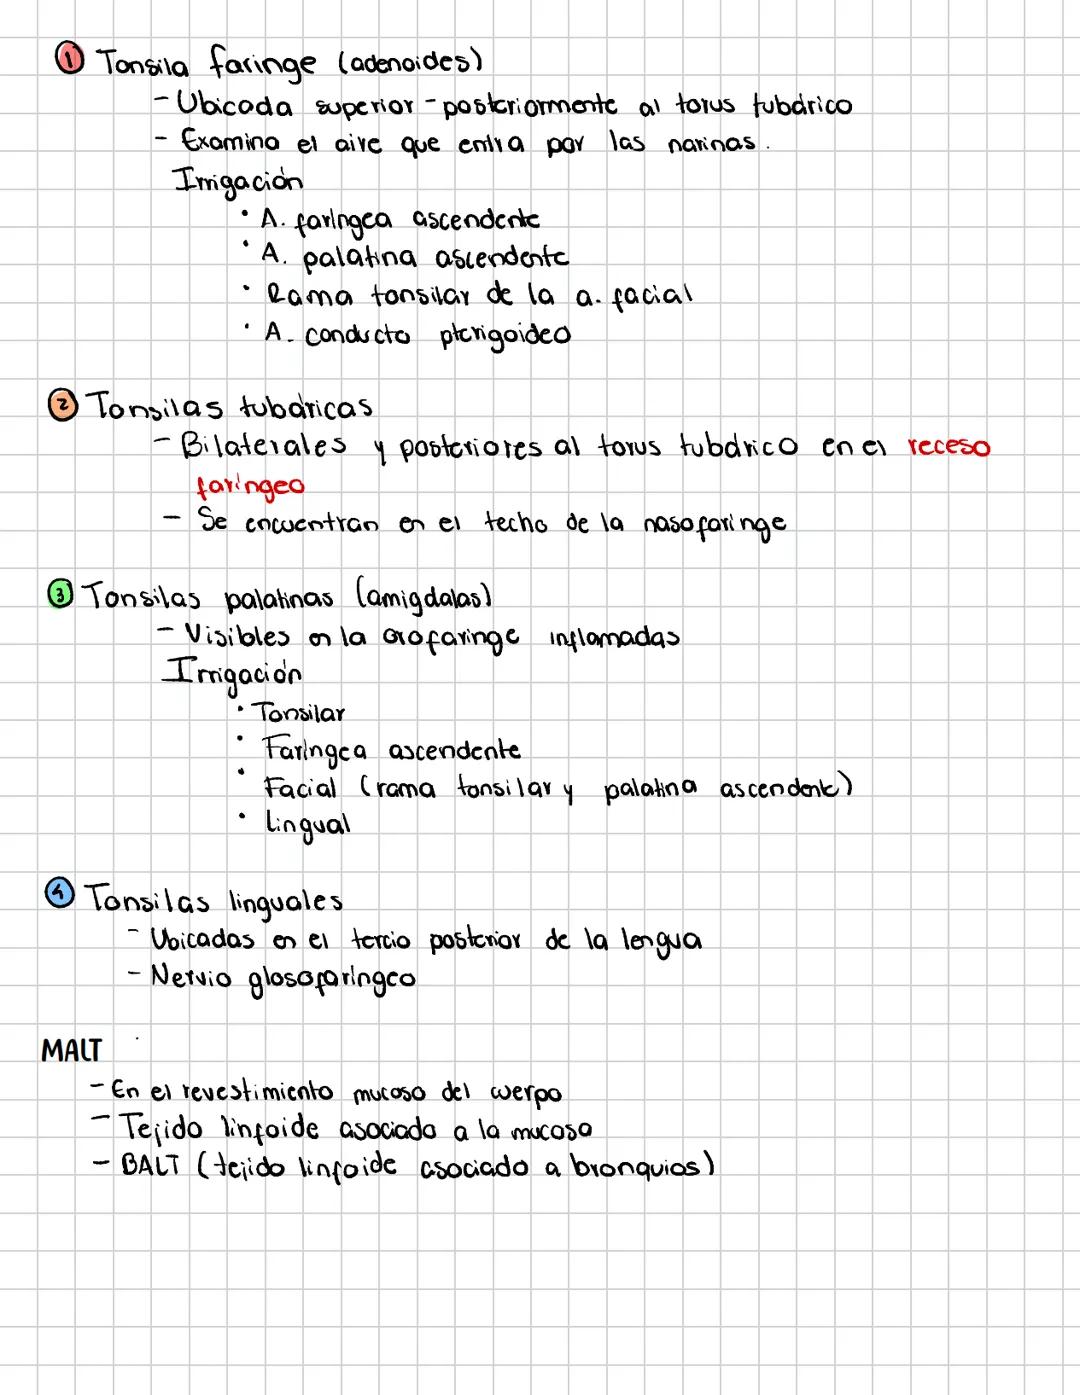 1 Tonsila faringe (adenoides)
- Ubicada superior - posteriormente al torus tubárico
- Examina el aire que entra por las narinas.
Irrigación
· A. faríngea ascendente
· A. palatina ascendente
· Rama tonsilar de la a. facial
· A. conducto pterigoideo
2 Tonsilas tubáricas
- Bilaterales y posteriores al torus tubárico en el receso
faríngeo
- Se encuentran en el techo de la nasofaringe
3 Tonsilas palatinas (amigdalas)
- Visibles en la orofaringe inflamadas
Irrigación
· Tonsilar
· Faríngea ascendente
· Facial (rama tonsilar y palatina ascendente)
· Lingual
4 Tonsilas linguales
- Ubicadas en el tercio posterior de la lengua
- Nervio glosofaríngeo
MALT
- En el revestimiento mucoso del cuerpo
- Tejido linfoide asociado a la mucosa
- BALT (tejido linfoide asociado a bronquios)